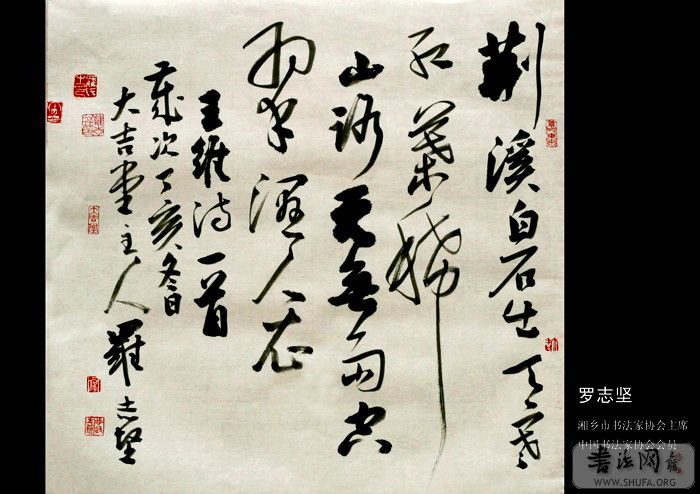 荊溪白石出天寒
紅葉稀
山路元無雨空
翠濕人衣
王維詩一首
歲次丁亥冬日
大吉堂主人羅志堅
罗志坚
湘乡市书法家协会主席
中国书法家协会会员
书法网
WWW.SHUFA.ORG